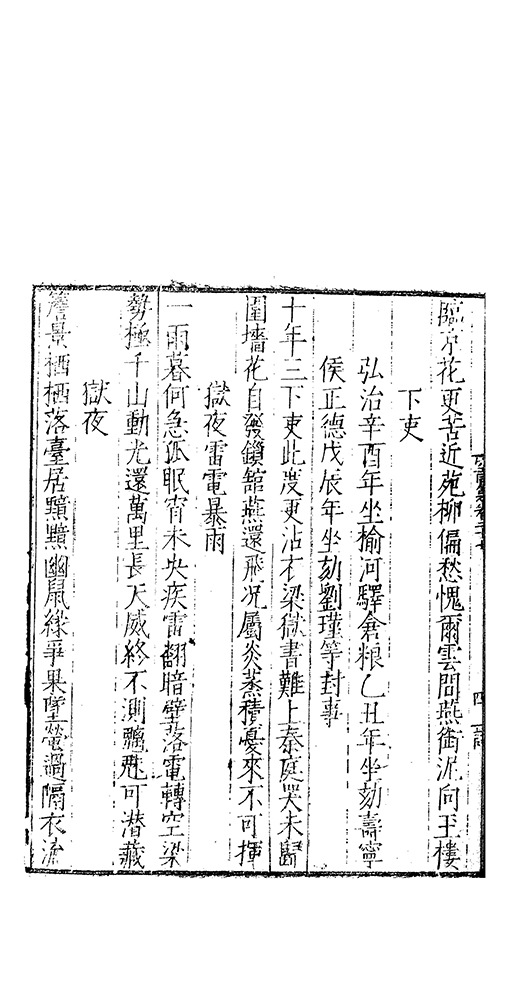 臨京花更苦近苑柳偏愁愧爾雲間燕銜泥向玉樓
下吏
弘治辛酉年坐榆河驛倉粮乙丑年坐劾壽寧
侯正德戊辰年坐劾劉瑾等封事
十年三下吏此度更沾衣梁獄書難上秦庭哭未歸
圍墻花自發鎖館燕還飛况屬炎蒸積憂來不可揮
獄夜雷電暴雨
一雨暮何急孤眠宵未央疾雷翻暗壁落電轉空梁
勢極千山動光還萬里長天威終不測魑魅可潜藏
獄夜
簷景栖栖落臺居黯黯幽鼠緣爭果墮螢過隔衣流
四